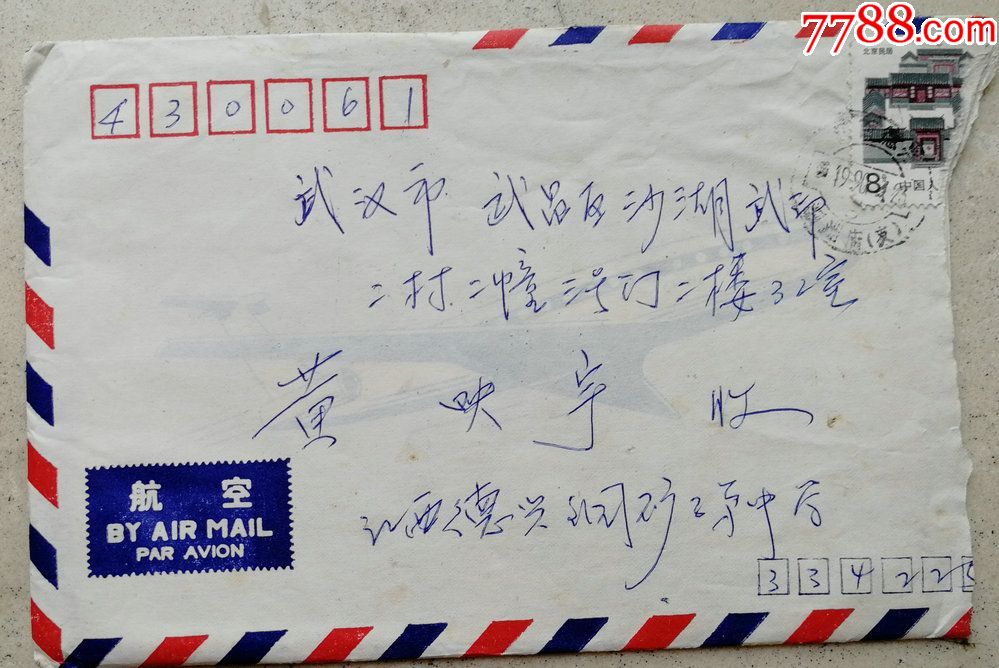 7788.com
北京民居
430061
8 中国人
武汉市 武昌区沙湖武邮
二村二幢三号门二楼32室
黄映宇 收
航空
BY AIR MAIL
PAR AVION
江西德兴铜矿
33422